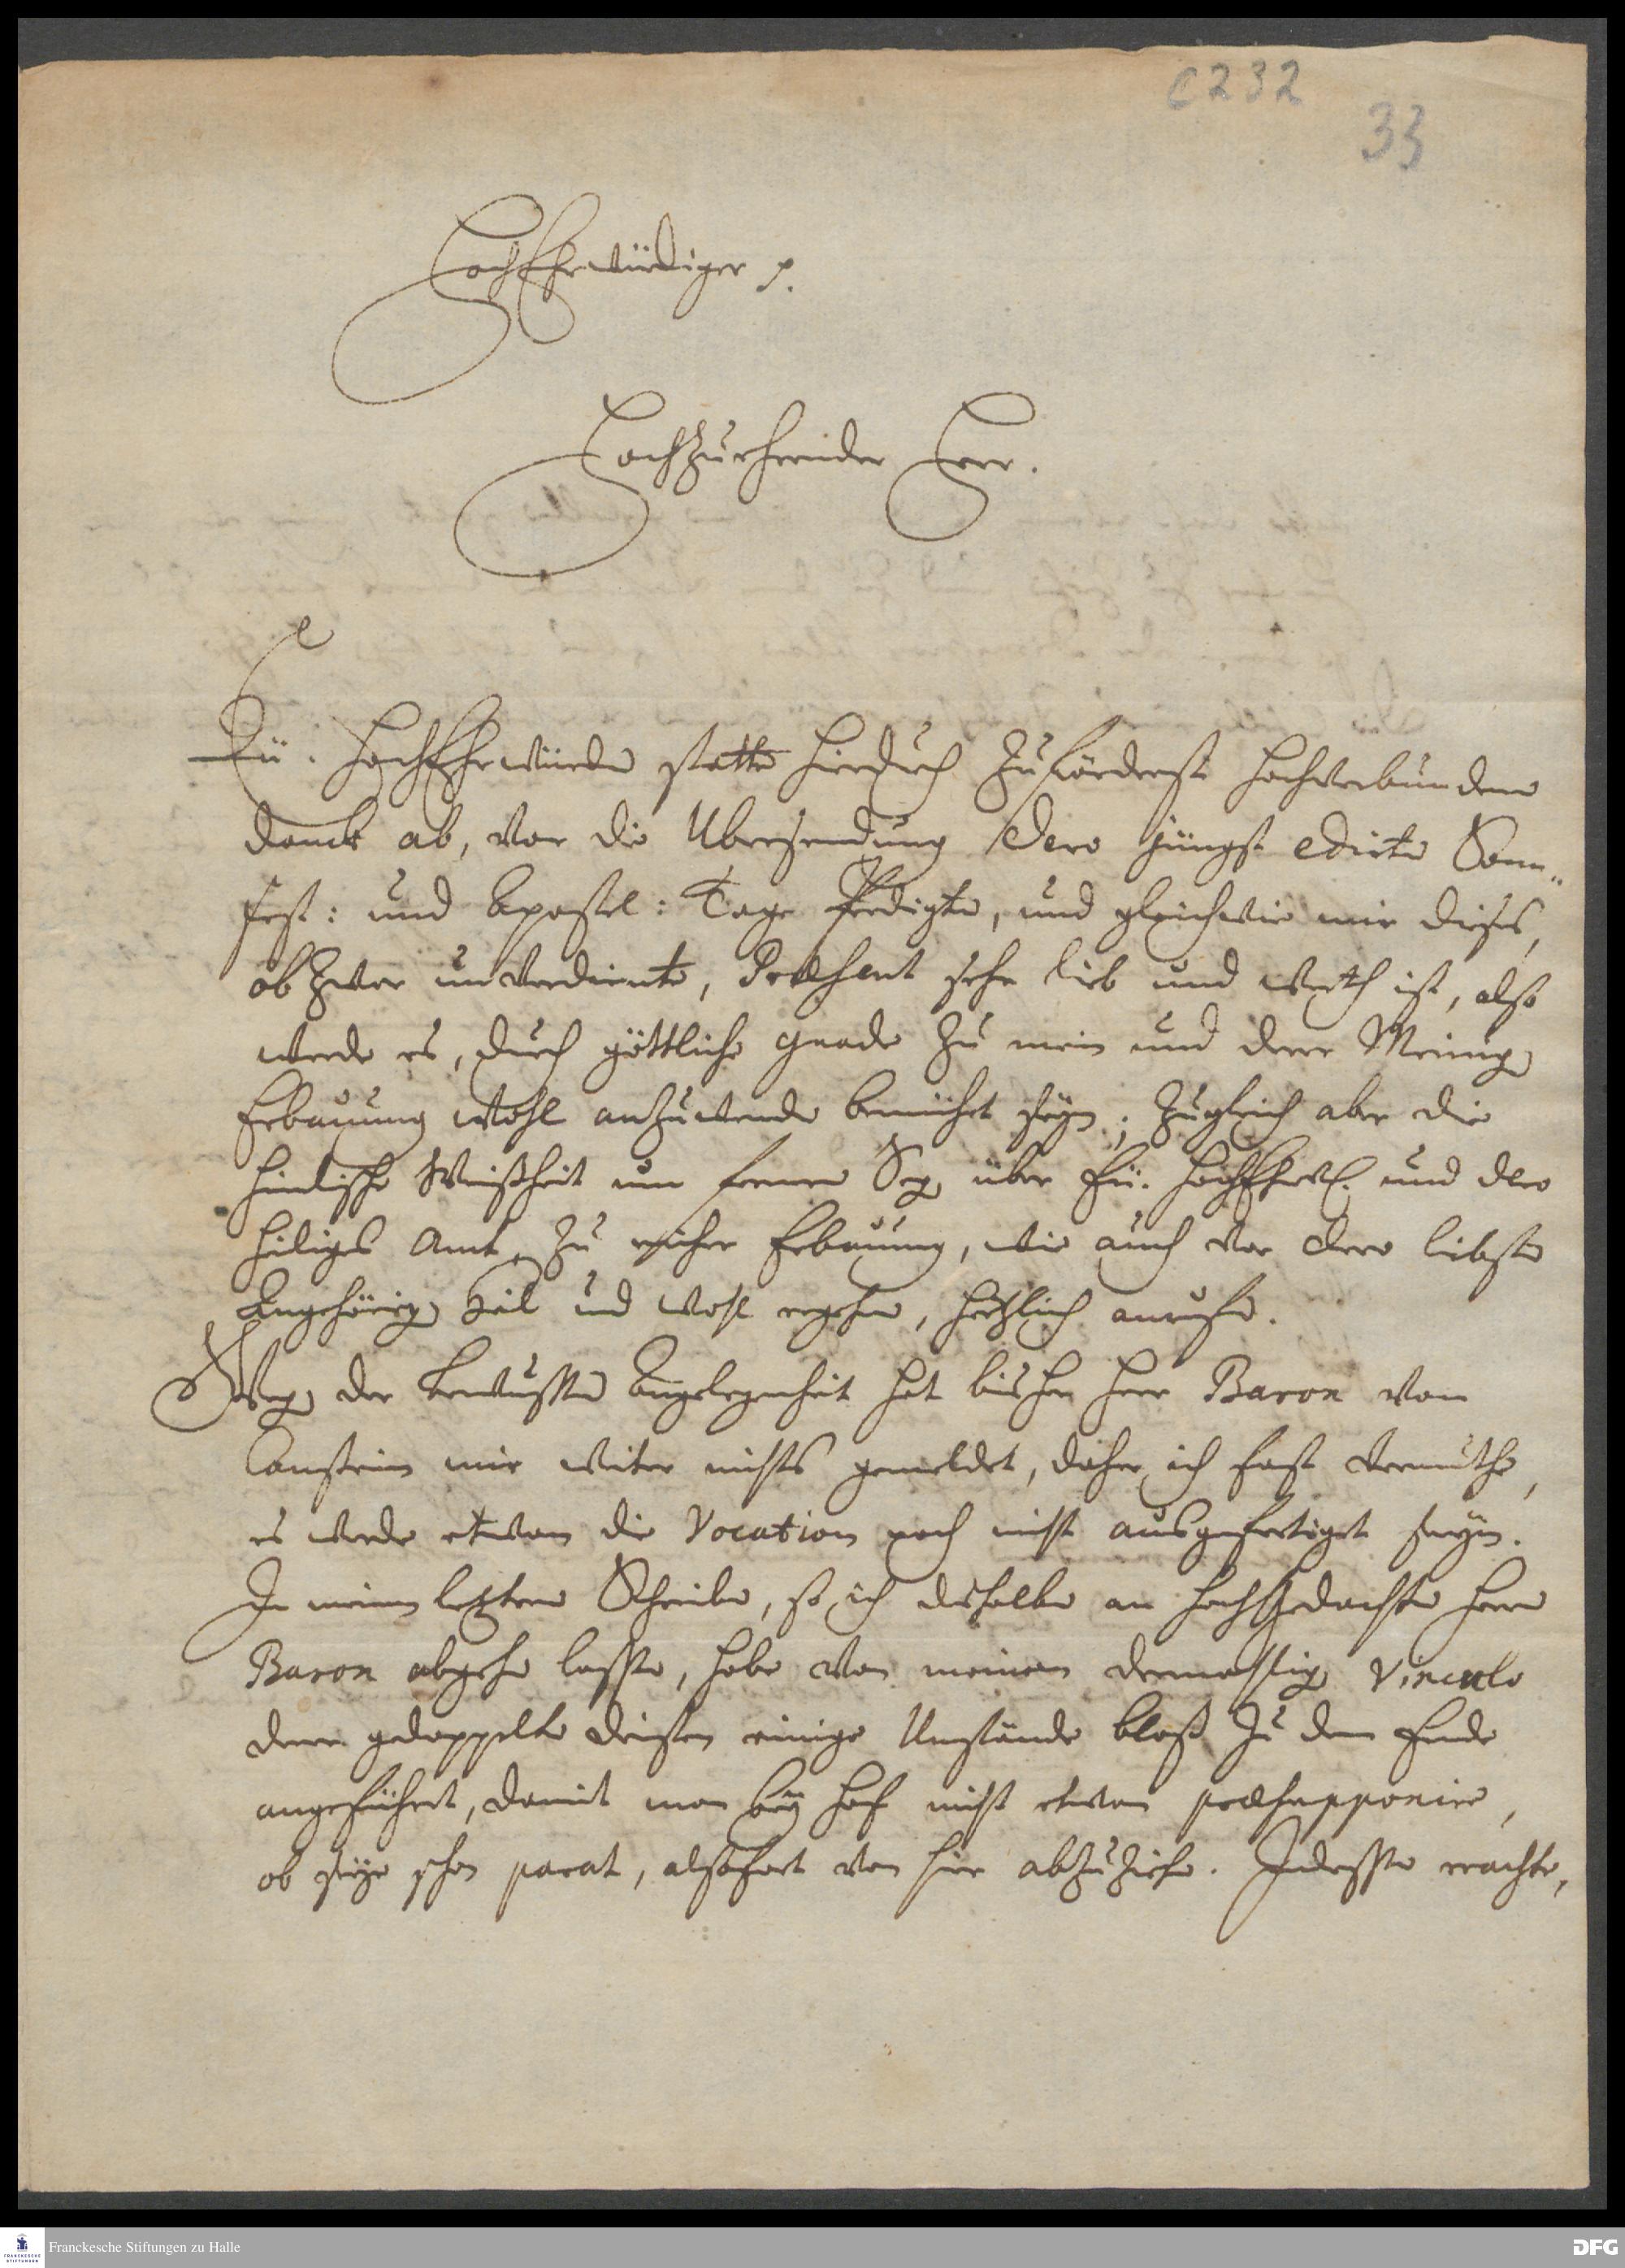 C 232
33
HochEhrwürdiger p.
Hochzuehrender Herr.
Eü. HochEhrwürde statte hierdurch zuförderst hochverbundene
danck ab, vor die Ubersendung dero jüngst edirte Sonn„
fest: und Apostel: Tage Predigte, und gleichwie mir dieses,
ob zwar unverdiente, Præsent sehr lieb und werth ist, also
werde es, durch göttliche Gnade zu mein und derer Meinig
Erbauung wohl anzuwende bemühet seyn; zugleich aber die
himlische Weißheit um ferner Seg über Eü. HochEhrw. und dero
heiliges Amt, zu reicher Erbauung, wie auch vor dero liebste
Angehörig Heil und Wohl ergehen, hertzlich anrufe.
Weg der bewusste Angelegenheit hat bisher Herr Baron von
Canstein mir weiter nichts gemeldet, daher ich fast vermuthe,
es werde etwan die Vocation noch nicht ausgefertiget seyn.
In meinem letztern Schreibe, so ich deshalber an hochgedachte Herrn
Baron abgehe lasse, habe von meinem dermahlig Vinculo
derer gedoppelte Diensten einige Umstände bloß zu dem Ende
angeführet, damit man bey Hof nicht etwan præsupponire,
ob seye schon parat, alsofort von hier abzuziehe. Indesse erachte,
Franckesche Stiftungen zu Halle
DFG